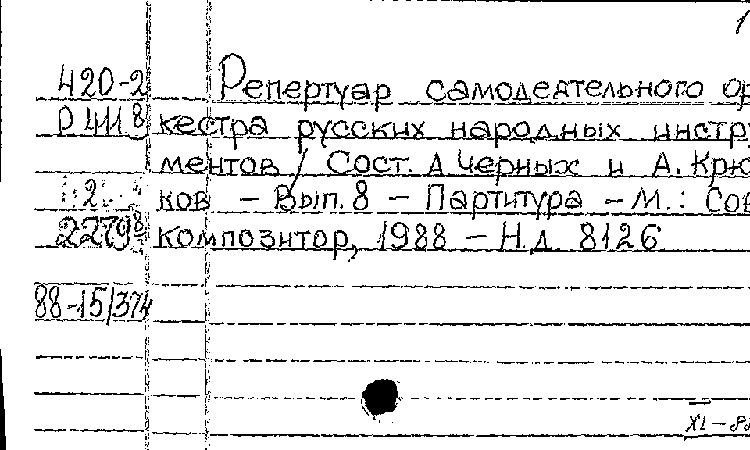 1
420-2 Репертуар самодеятельного ор
Р 411 8 кестра русских народных инстру
ментов / Сост. А. Черных и А. Крю
ков – Вып. 8 – Партитура – М.: Сов
22798 композитор, 1988 – Н.д. 8126
88-15/374
XI – 88